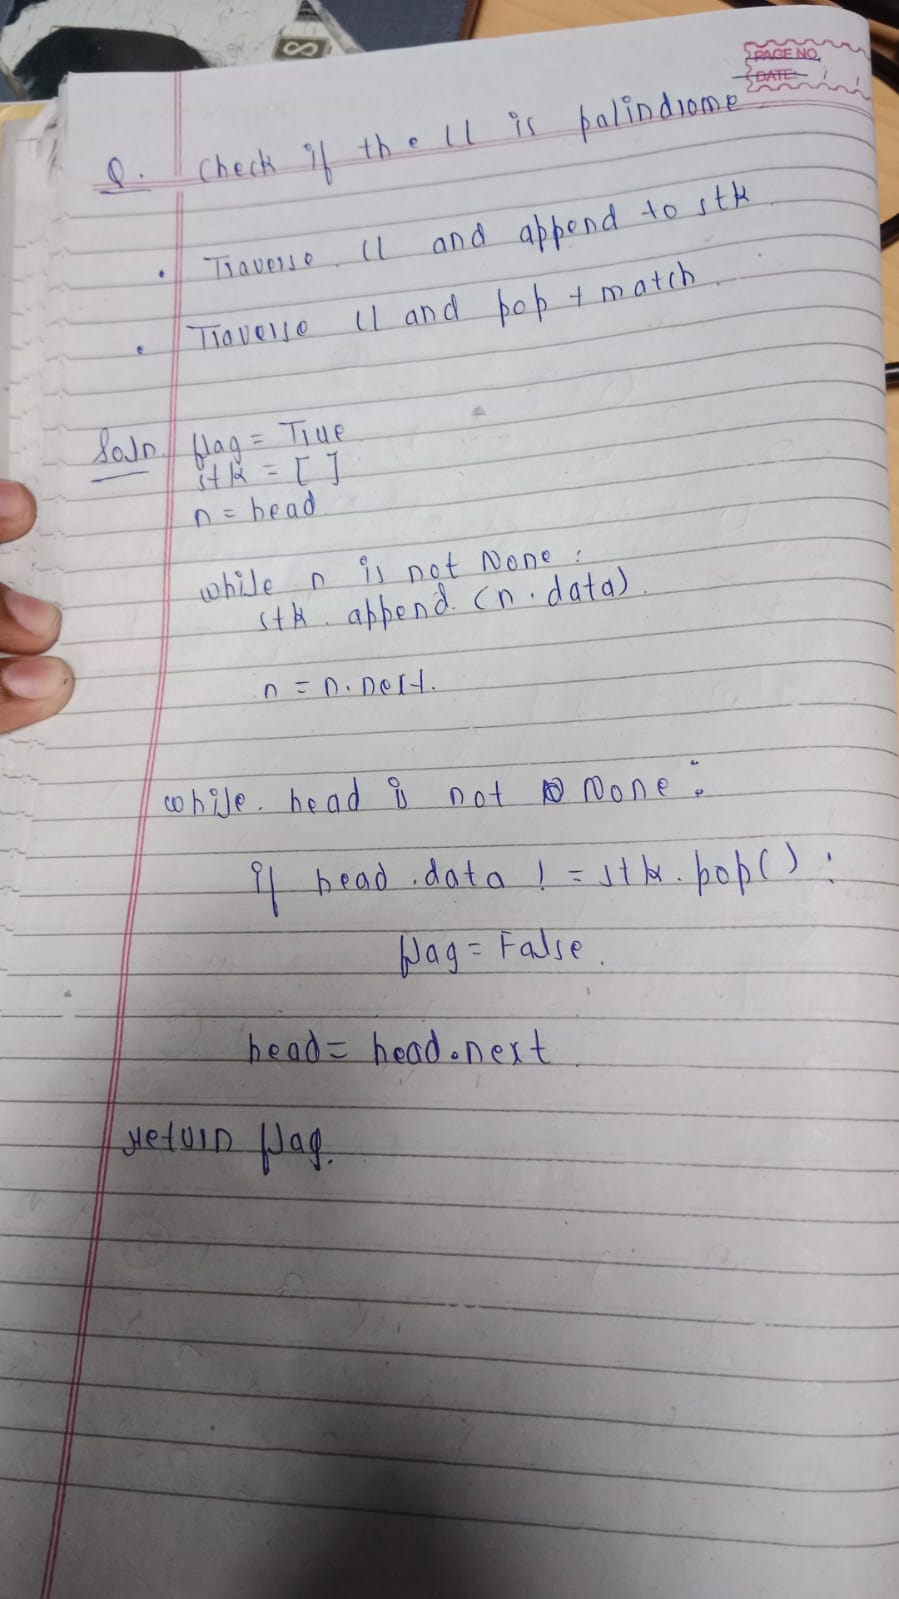 PAGE NO.
DATE
Q. Check if the ll is palindrome
• Traverse ll and append to stk
• Traverse ll and pop + match
Soln. flag = True
stk = [ ]
n = head
while n is not None :
stk . append (n . data)
n = n . next.
while head is not None :
if head . data != stk . pop( ) :
flag = False
head = head . next
return flag.